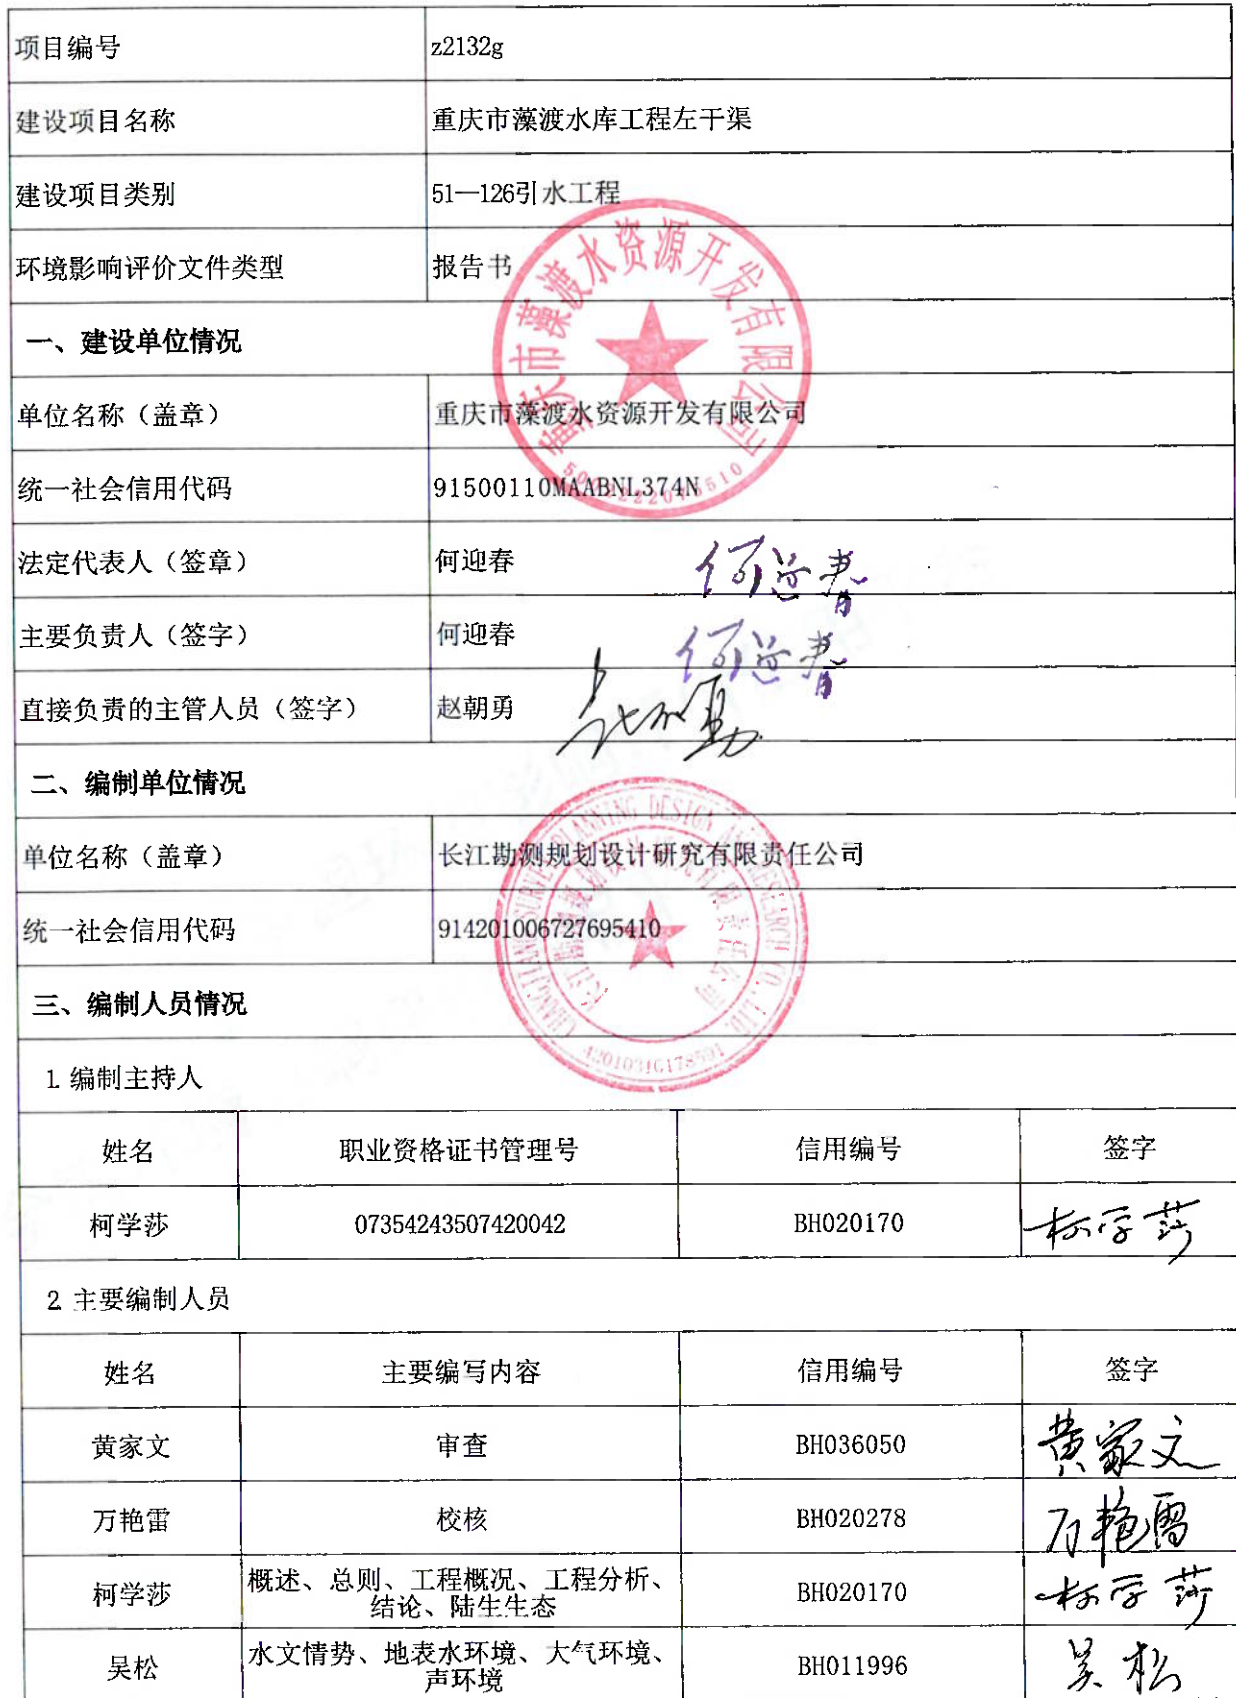 项目编号 z2132g
建设项目名称 重庆市藻渡水库工程左干渠
建设项目类别 51—126引水工程
环境影响评价文件类型 报告书
一、建设单位情况
单位名称（盖章） 重庆市藻渡水资源开发有限公司
统一社会信用代码 91500110MAABNL374N
重庆市藻渡水资源开发有限公司
法定代表人（签章） 何迎春 何迎春
主要负责人（签字） 何迎春 何迎春
直接负责的主管人员（签字） 赵朝勇
二、编制单位情况
单位名称（盖章） 长江勘测规划设计研究有限责任公司
统一社会信用代码 914201006727695410
三、编制人员情况
1 编制主持人
姓名 职业资格证书管理号 信用编号 签字
柯学莎 07354243507420042 BH020170 柯学莎
2 主要编制人员
姓名 主要编写内容 信用编号 签字
黄家文 审查 BH036050 黄家文
万艳雷 校核 BH020278 万艳雷
柯学莎 概述、总则、工程概况、工程分析、 BH020170 柯学莎
结论、陆生生态
吴松 水文情势、地表水环境、大气环境、 BH011996 吴松
声环境